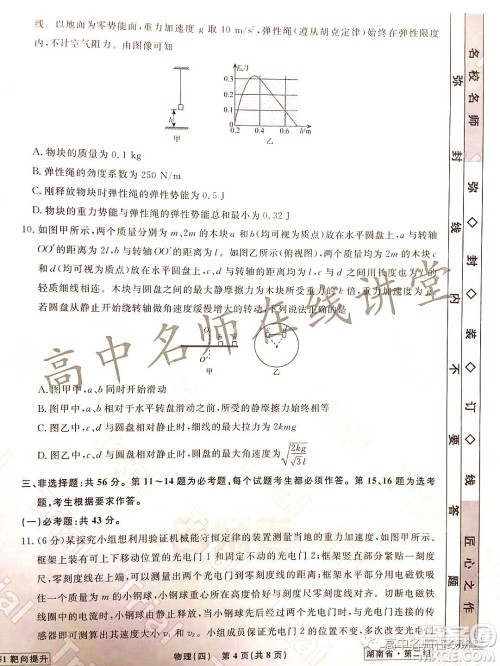 线。以地面为零势能面，重力加速度 g 取 10 m/s²，弹性绳（遵从胡克定律）始终在弹性限度
内，不计空气阻力。由图像可知
h
甲
Eₖ/J
0.3
0.2
0.1
0
0.2
0.4
0.6
0.8
h/m
乙
A. 物块的质量为 0.1 kg
B. 弹性绳的劲度系数为 250 N/m
C. 刚释放物块时弹性绳的弹性势能为 0.5 J
D. 物块的重力势能与弹性绳的弹性势能总和最小为 0.32 J
10. 如图甲所示，两个质量分别为 m、2m 的木块 a 和 b（均可视为质点）放在水平圆盘上，a 与转轴
OO′的距离为 2l，b 与转轴 OO′的距离为 l。如图乙所示（俯视图），两个质量均为 2m 的木块
c 和 d（可视为质点）放在水平圆盘上，c 与转轴、d 与转轴的距离均为 l，c 与 d 之间用长度也为 l 的
轻质细线相连。木块与圆盘之间的最大静摩擦力为木块所受重力的 k 倍，重力加速度为 g。
若圆盘从静止开始绕转轴做角速度缓慢增大的转动，下列说法正确的是
高中名师在线讲堂
甲
乙
A. 图甲中，a、b 同时开始滑动
B. 图甲中，a、b 相对于水平转盘滑动之前，所受的静摩擦力始终相等
C. 图乙中，c、d 与圆盘相对静止时，细线的最大拉力为 2kmg
D. 图乙中，c、d 与圆盘相对静止时，圆盘的最大角速度为 √(2kg/√3l)
三、非选择题：共 56 分。第 11～14 题为必考题，每个试题考生都必须作答。第 15、16 题为选考
题，考生根据要求作答。
（一）必考题：共 43 分。
11. (6 分) 某探究小组想利用验证机械能守恒定律的装置测量当地的重力加速度，如图甲所示。
框架上装有可上下移动位置的光电门 1 和固定不动的光电门 2；框架竖直部分紧贴一刻度
尺，零刻度线在上端，可以测量出两个光电门到零刻度线的距离；框架水平部分用电磁铁吸
住一个质量为 m 的小钢球，小钢球的重心所在高度恰好与刻度尺的零刻度线对齐。切断电
磁铁线圈中的电流时，小钢球由静止释放，当小钢球先后经过光电门 1 和光电门 2 时，与光
51 靶向提升
物理（四） 第 4 页（共 8 页）
湖南省·第二组
弥 封 线 内 不 要 答 题
名校名师
弥◇封◇装◇订◇线
匠心之作